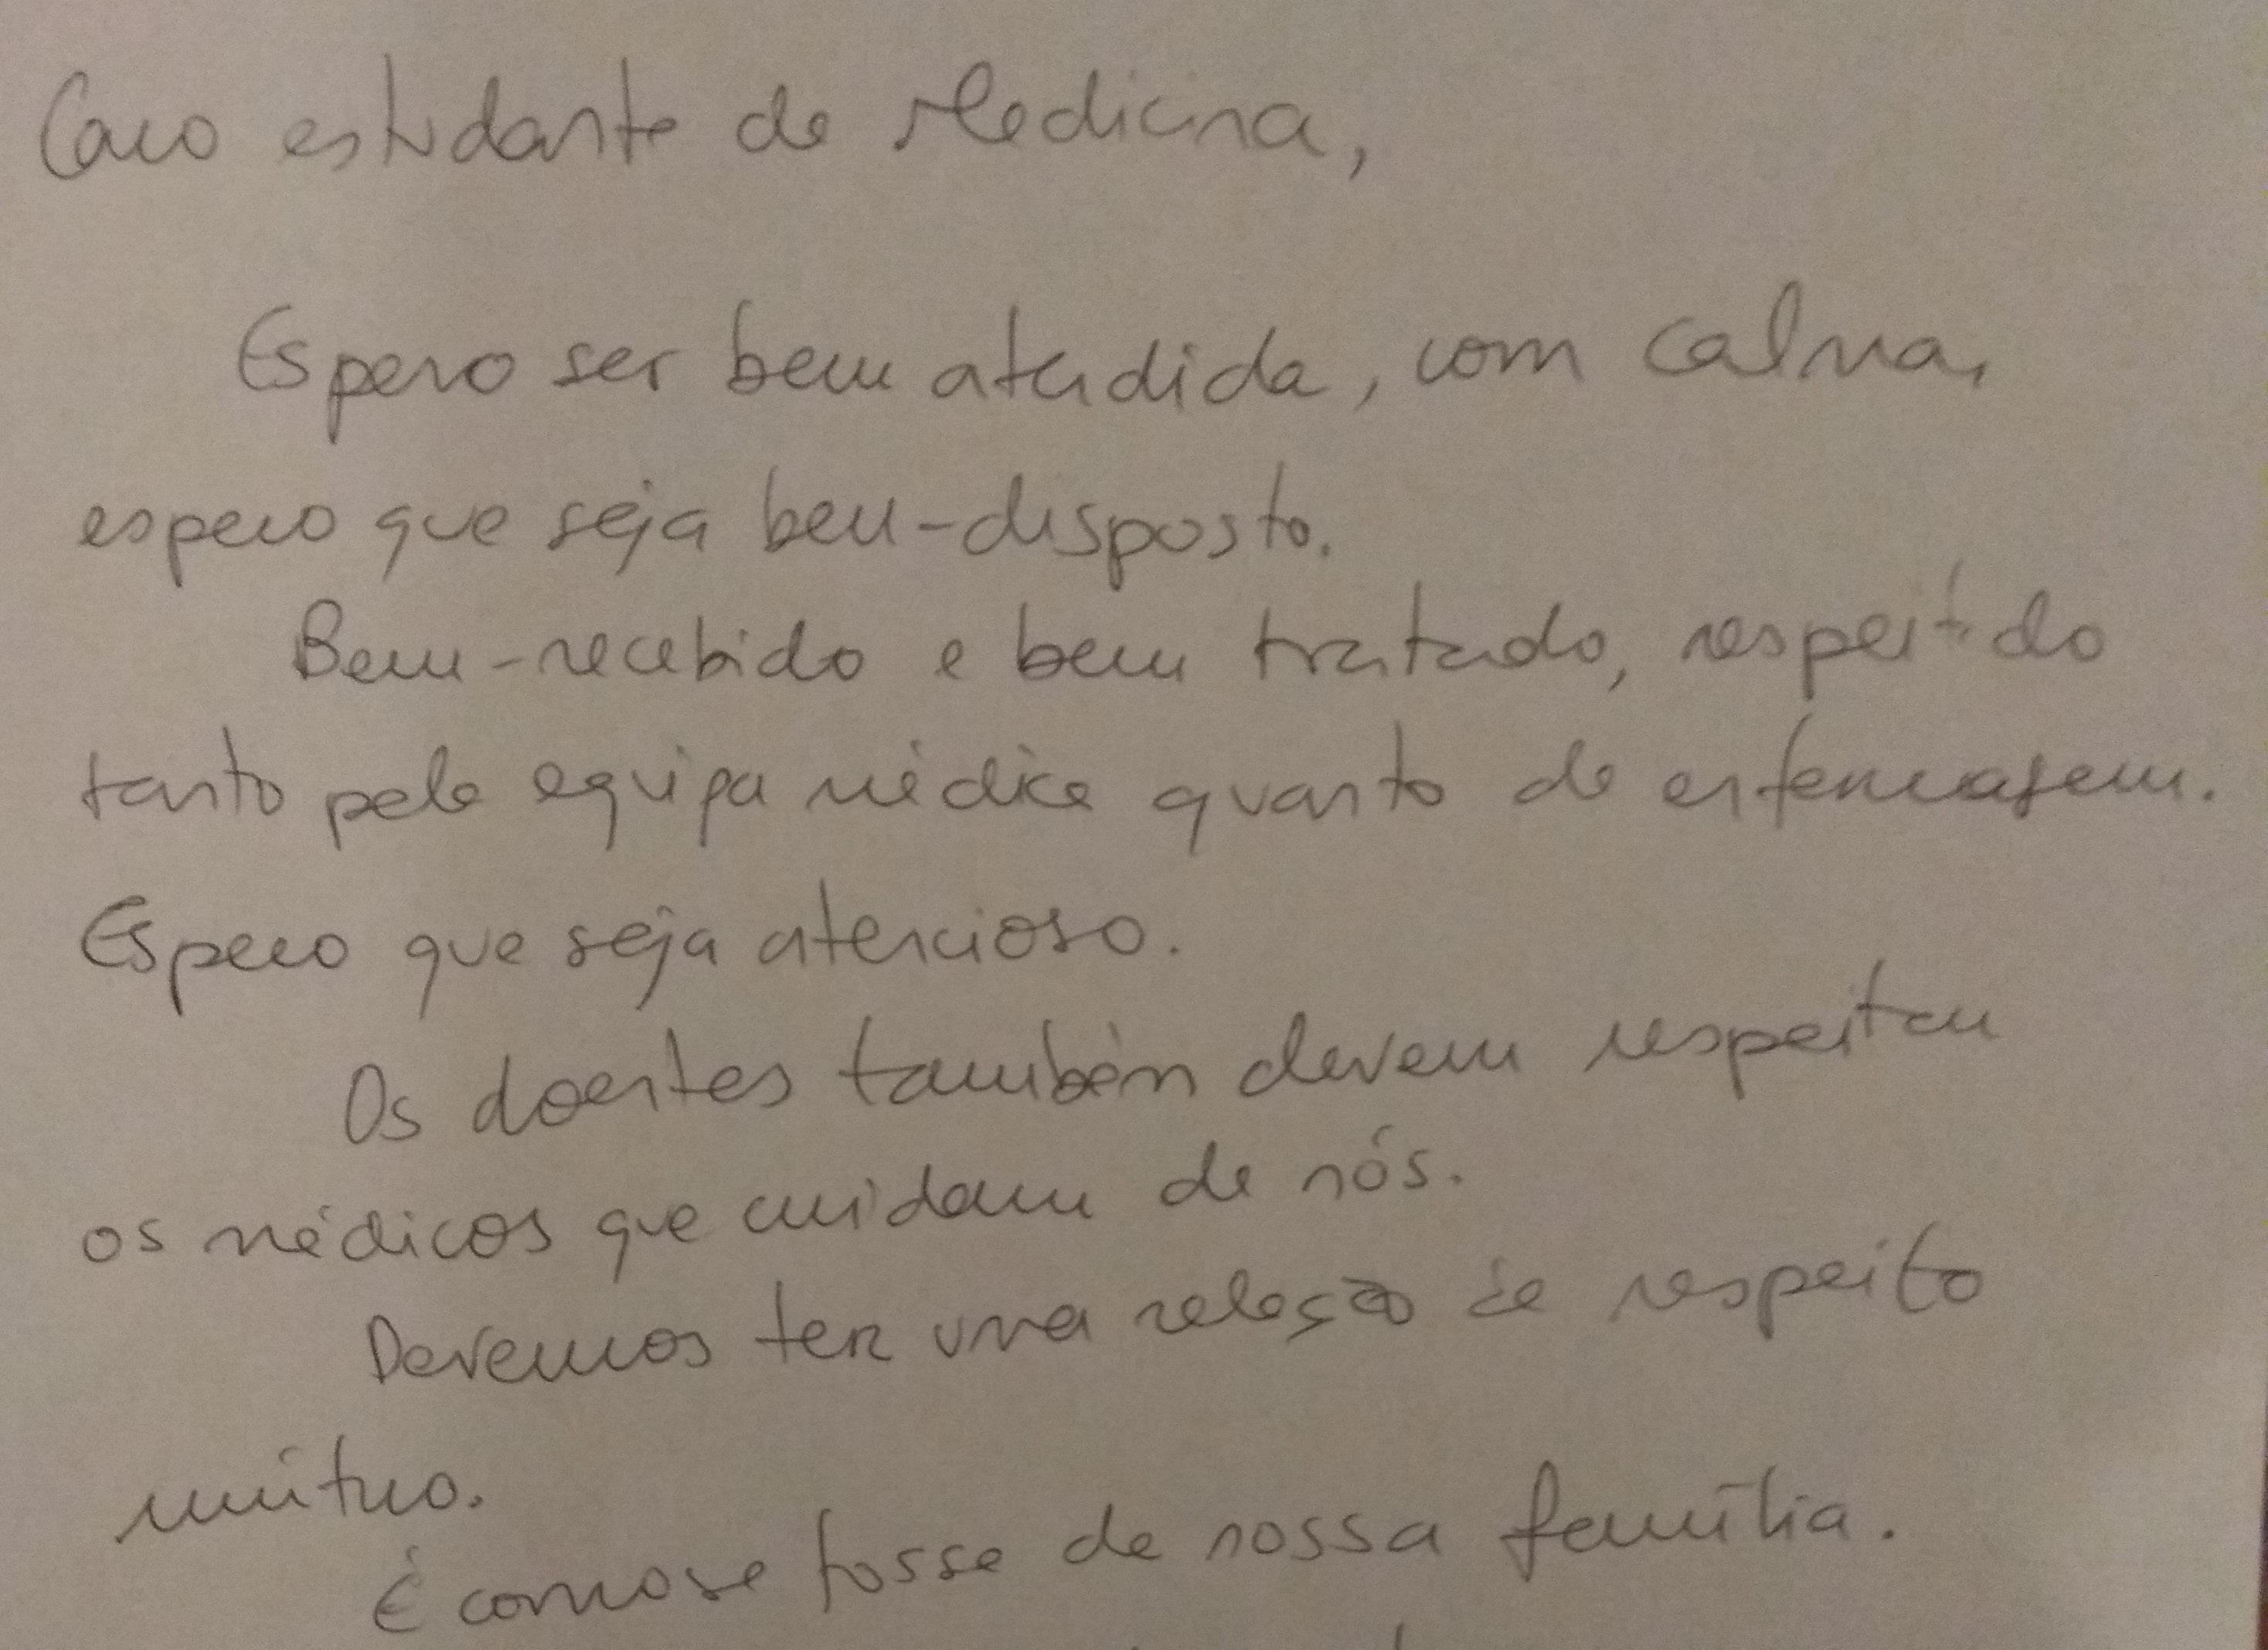 Caro estudante de Medicina,
Espero ser bem atendida, com calma,
espero que seja bem-disposto.
Bem-recebido e bem tratado, respeitado
tanto pela equipa médica quanto de enfermagem.
Espero que seja atencioso.
Os doentes também devem respeitar
os médicos que cuidam de nós.
Devemos ter uma relação de respeito
mútuo.
É como se fosse de nossa família.